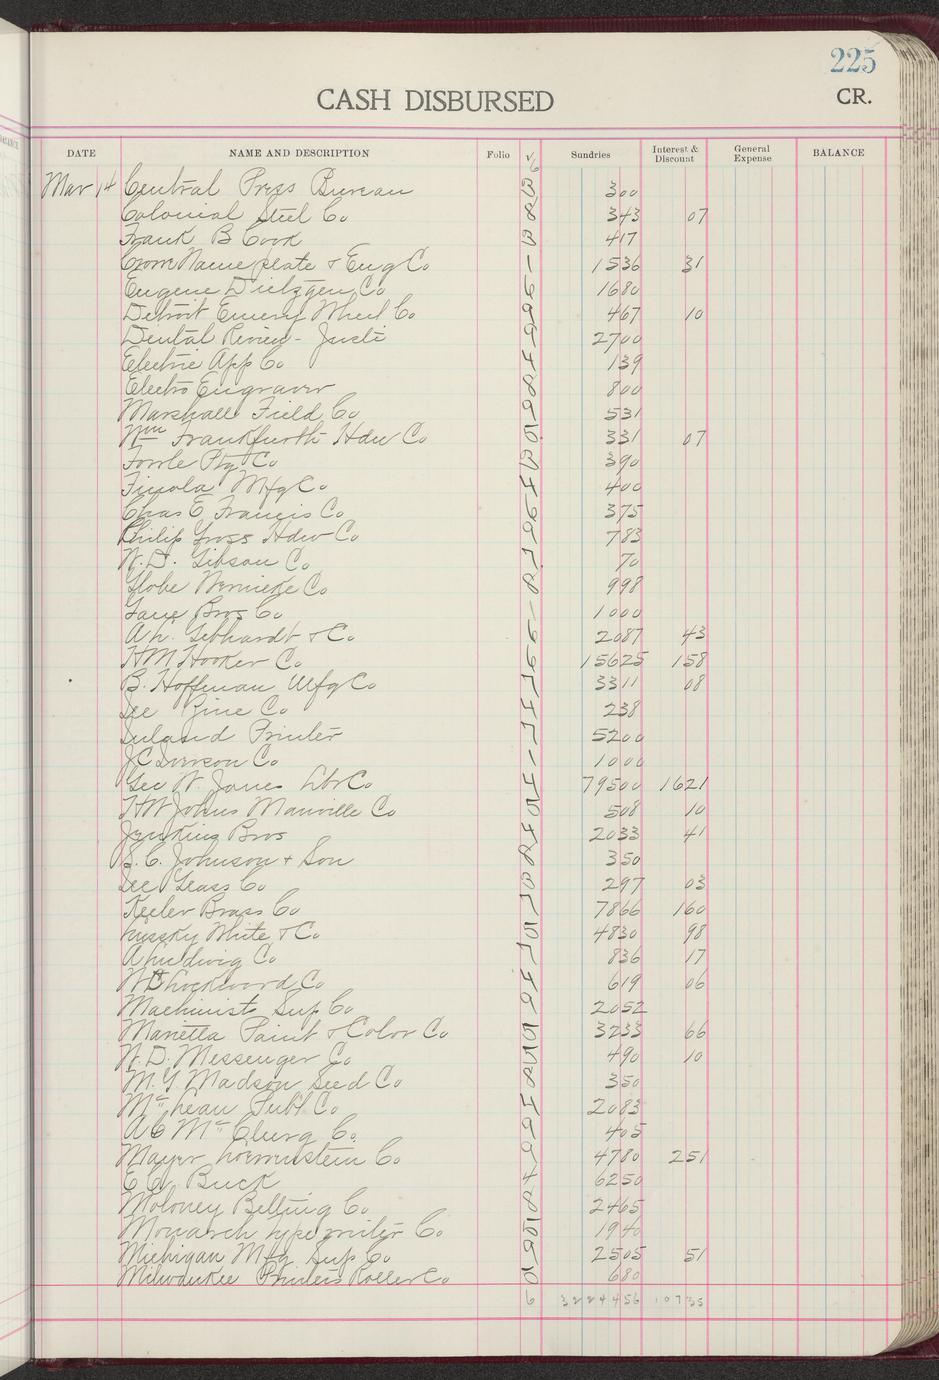 225
CASH DISBURSED
CR.
DATE NAME AND DESCRIPTION Folio Sundries Interest & Discount General Expense BALANCE
Mar 14 Central Press Bureau 300
Colonial Steel Co 343 07
Frank B Cook 417
Nameplate & Eng Co 1536 31
Eugene Dietzgen Co 1680
Detroit Emery Wheel Co 467 10
Dental Review - 2700
Electric App Co 139
Electro Engraver 800
Marshall Field Co 531
Wm Frankfurth Hdw Co 331 07
Fowle Ptg Co 390
Mfg Co 400
Chas E Francis Co 375
Philip Gross Hdw Co 783
W.D. Gibson Co 70
Globe Wernicke Co 998
Gane Bros Co 1000
Gebhardt & Co 2087 43
H M Hooker Co 15625 158
B. Hoffman Mfg Co 3311 08
Co 238
Inland Printer 5200
JC Iverson Co 1000
Geo W. Jones Lbr Co 79500 1621
HW Johns Manville Co 508 10
Jenkins Bros 2033 41
S.C. Johnson & Son 350
Co 297 03
Keeler Brass Co 7866 160
White & Co 4830 98
A Ludwig Co 836 17
Lockwood Co 619 06
Machinists Sup Co 2052
Marietta Paint & Color Co 3233 66
W.D. Messenger Co 490 10
Madson Seed Co 350
Mc Lean Publ Co 2083
A C Mc Clurg Co. 405
Mayer Co 4780 251
Buck 6250
Moloney Belting Co 2465
Monarch typewriter Co 1940
Michigan Mfg Sup Co 2505 51
Milwaukee Printers Roller Co 680
6 3224456 10735